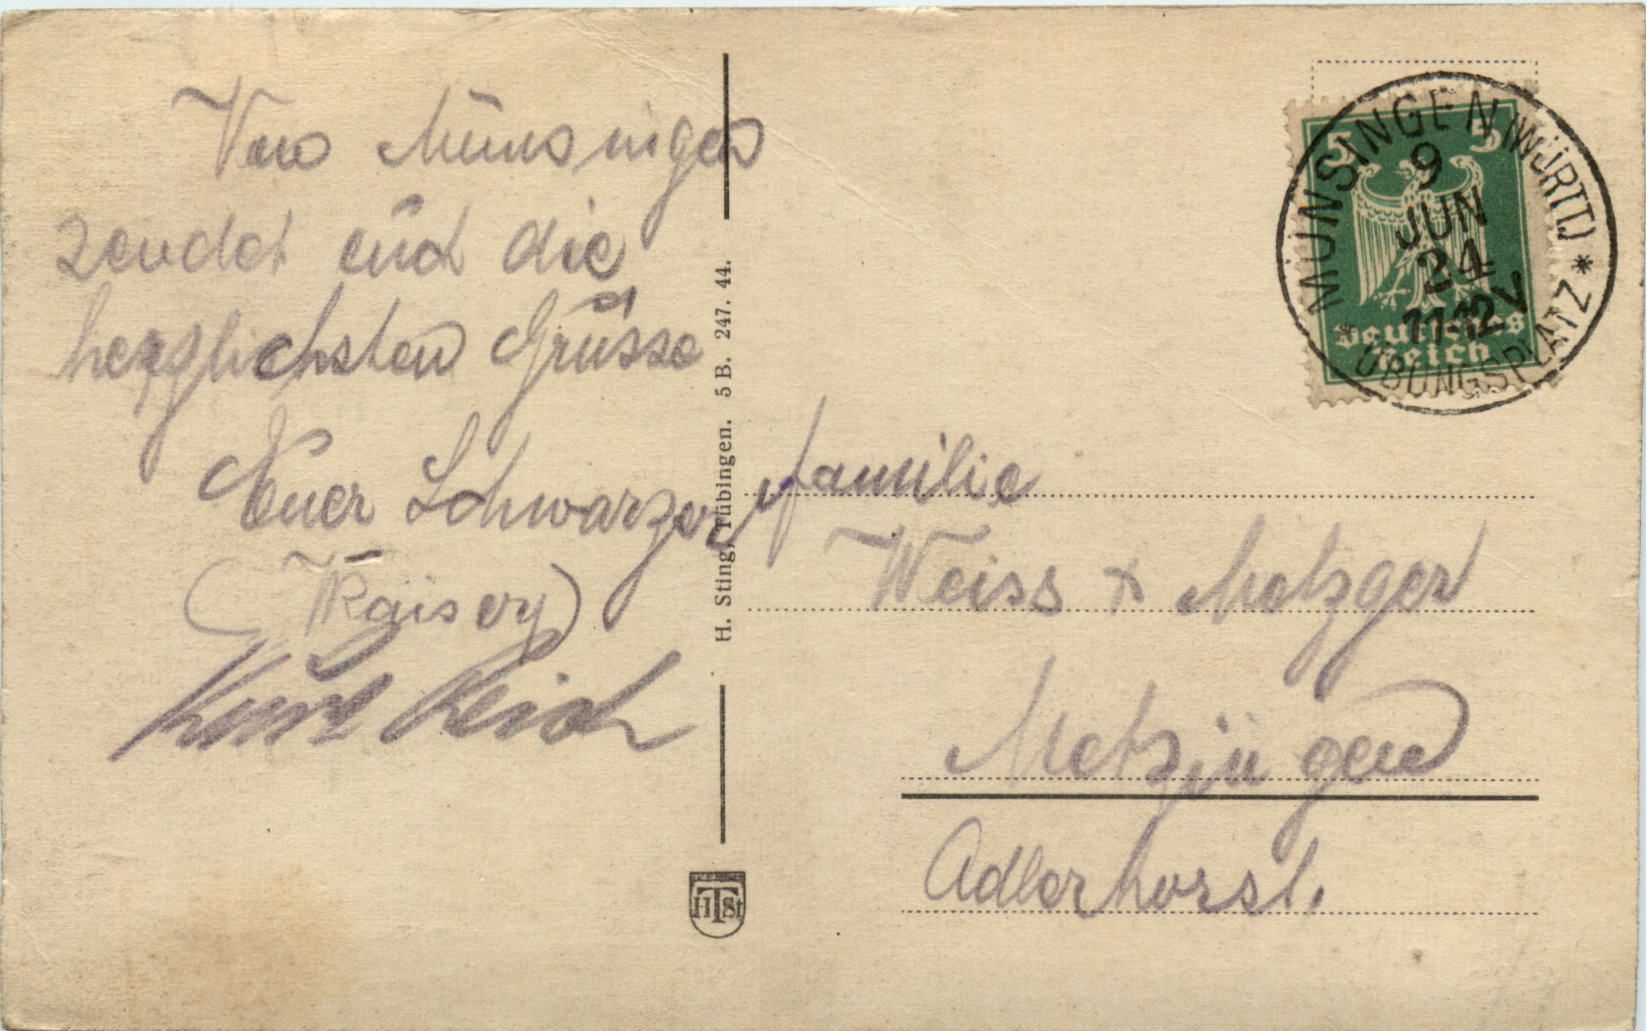 Von Münsingen
sendet euch die
herzlichsten Grüsse
Euer Schwarzer
(Kaiser)
Kurt Reich
H. Sting, Tübingen. 5 B. 247. 44.
HTSt
5 5
Deutsches
Reich
MÜNSINGEN (WÜRTT.)
9
JUN
24
11-12 V
* ÜBUNGSPLATZ *
Familie
Weiss + Metzger
Metzingen
Adlerhorst.